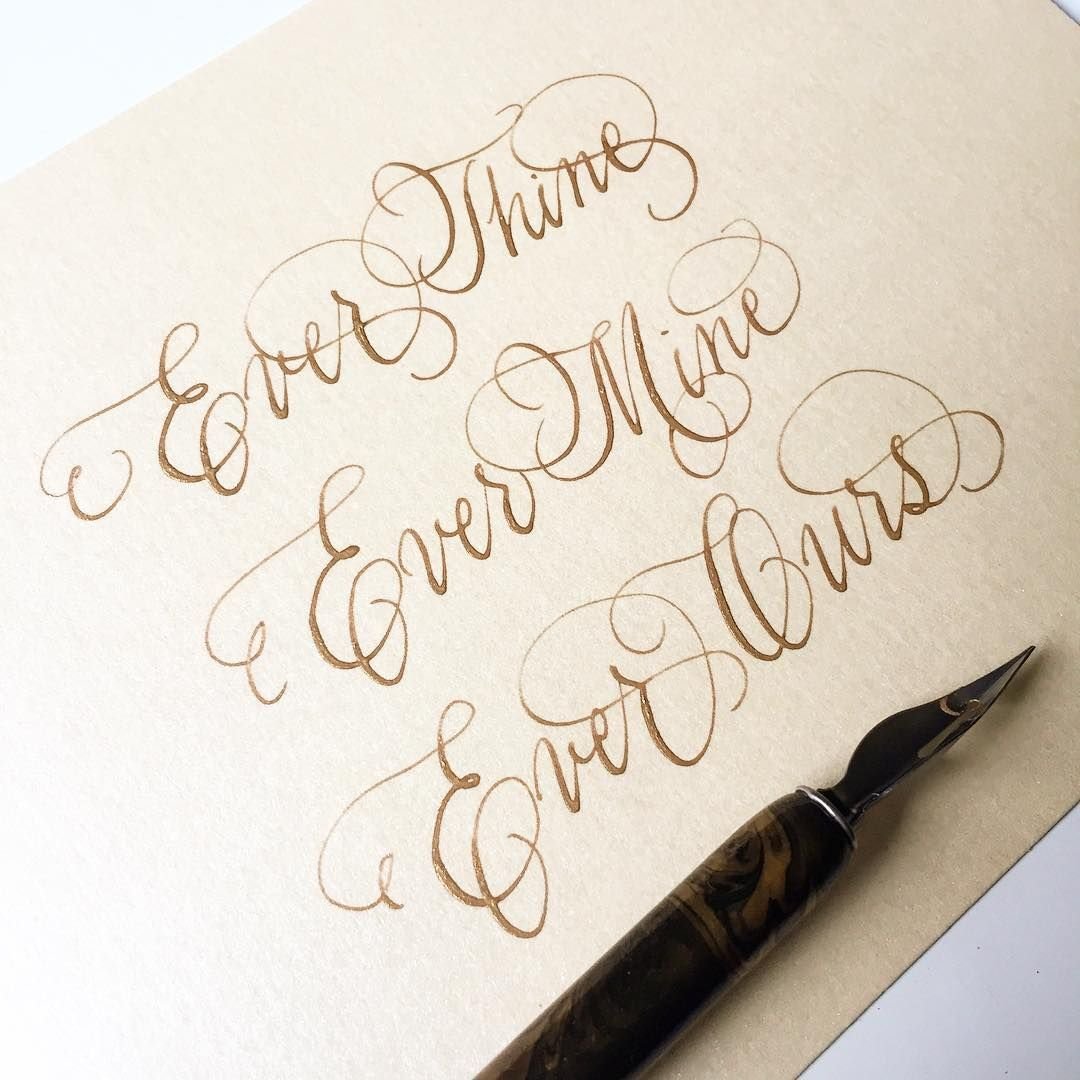 Ever Thine
Ever Mine
Ever Ours